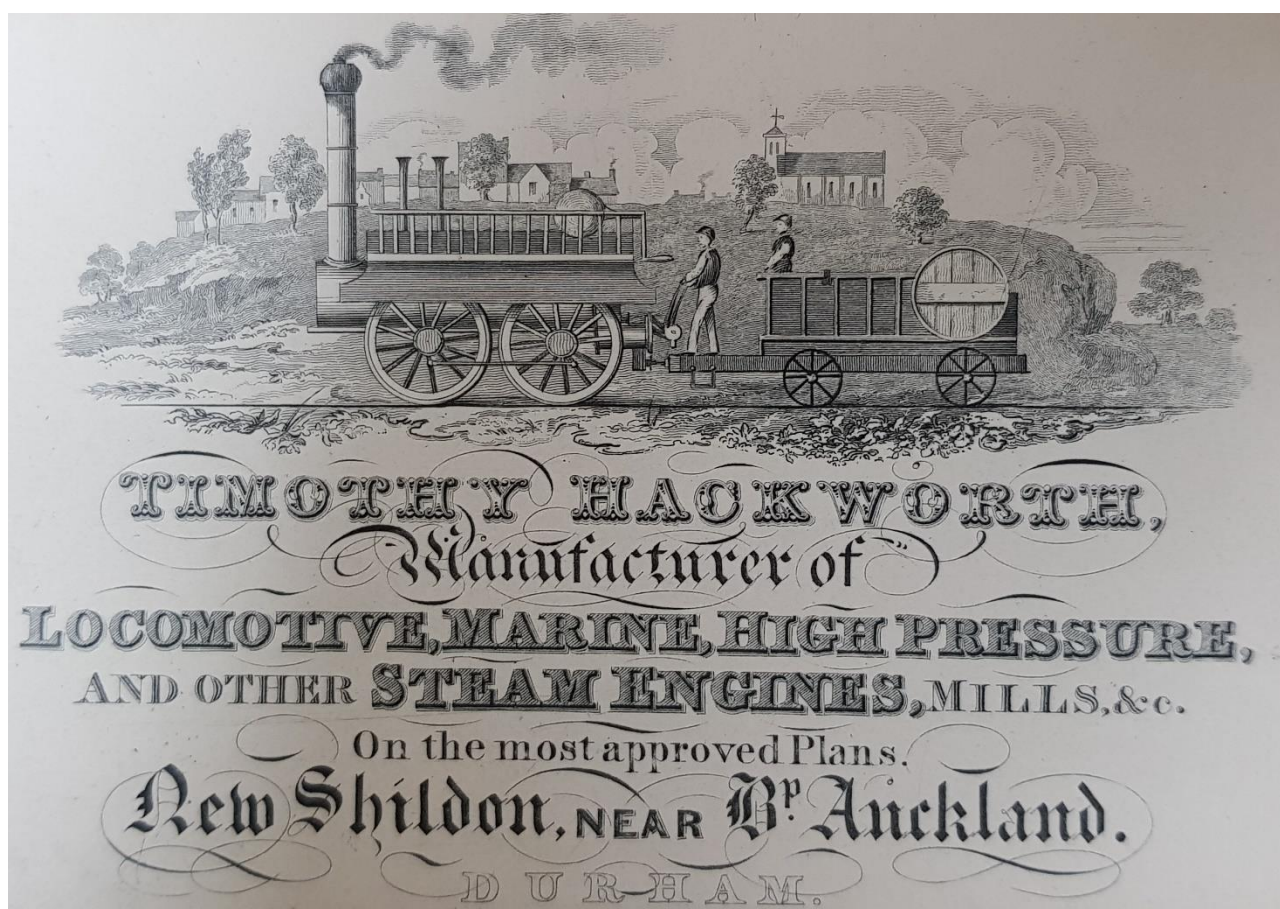 TIMOTHY HACKWORTH,
Manufacturer of
LOCOMOTIVE, MARINE, HIGH PRESSURE,
AND OTHER STEAM ENGINES, MILLS, &c.
On the most approved Plans.
New Shildon, NEAR Bp. Auckland.
DURHAM.